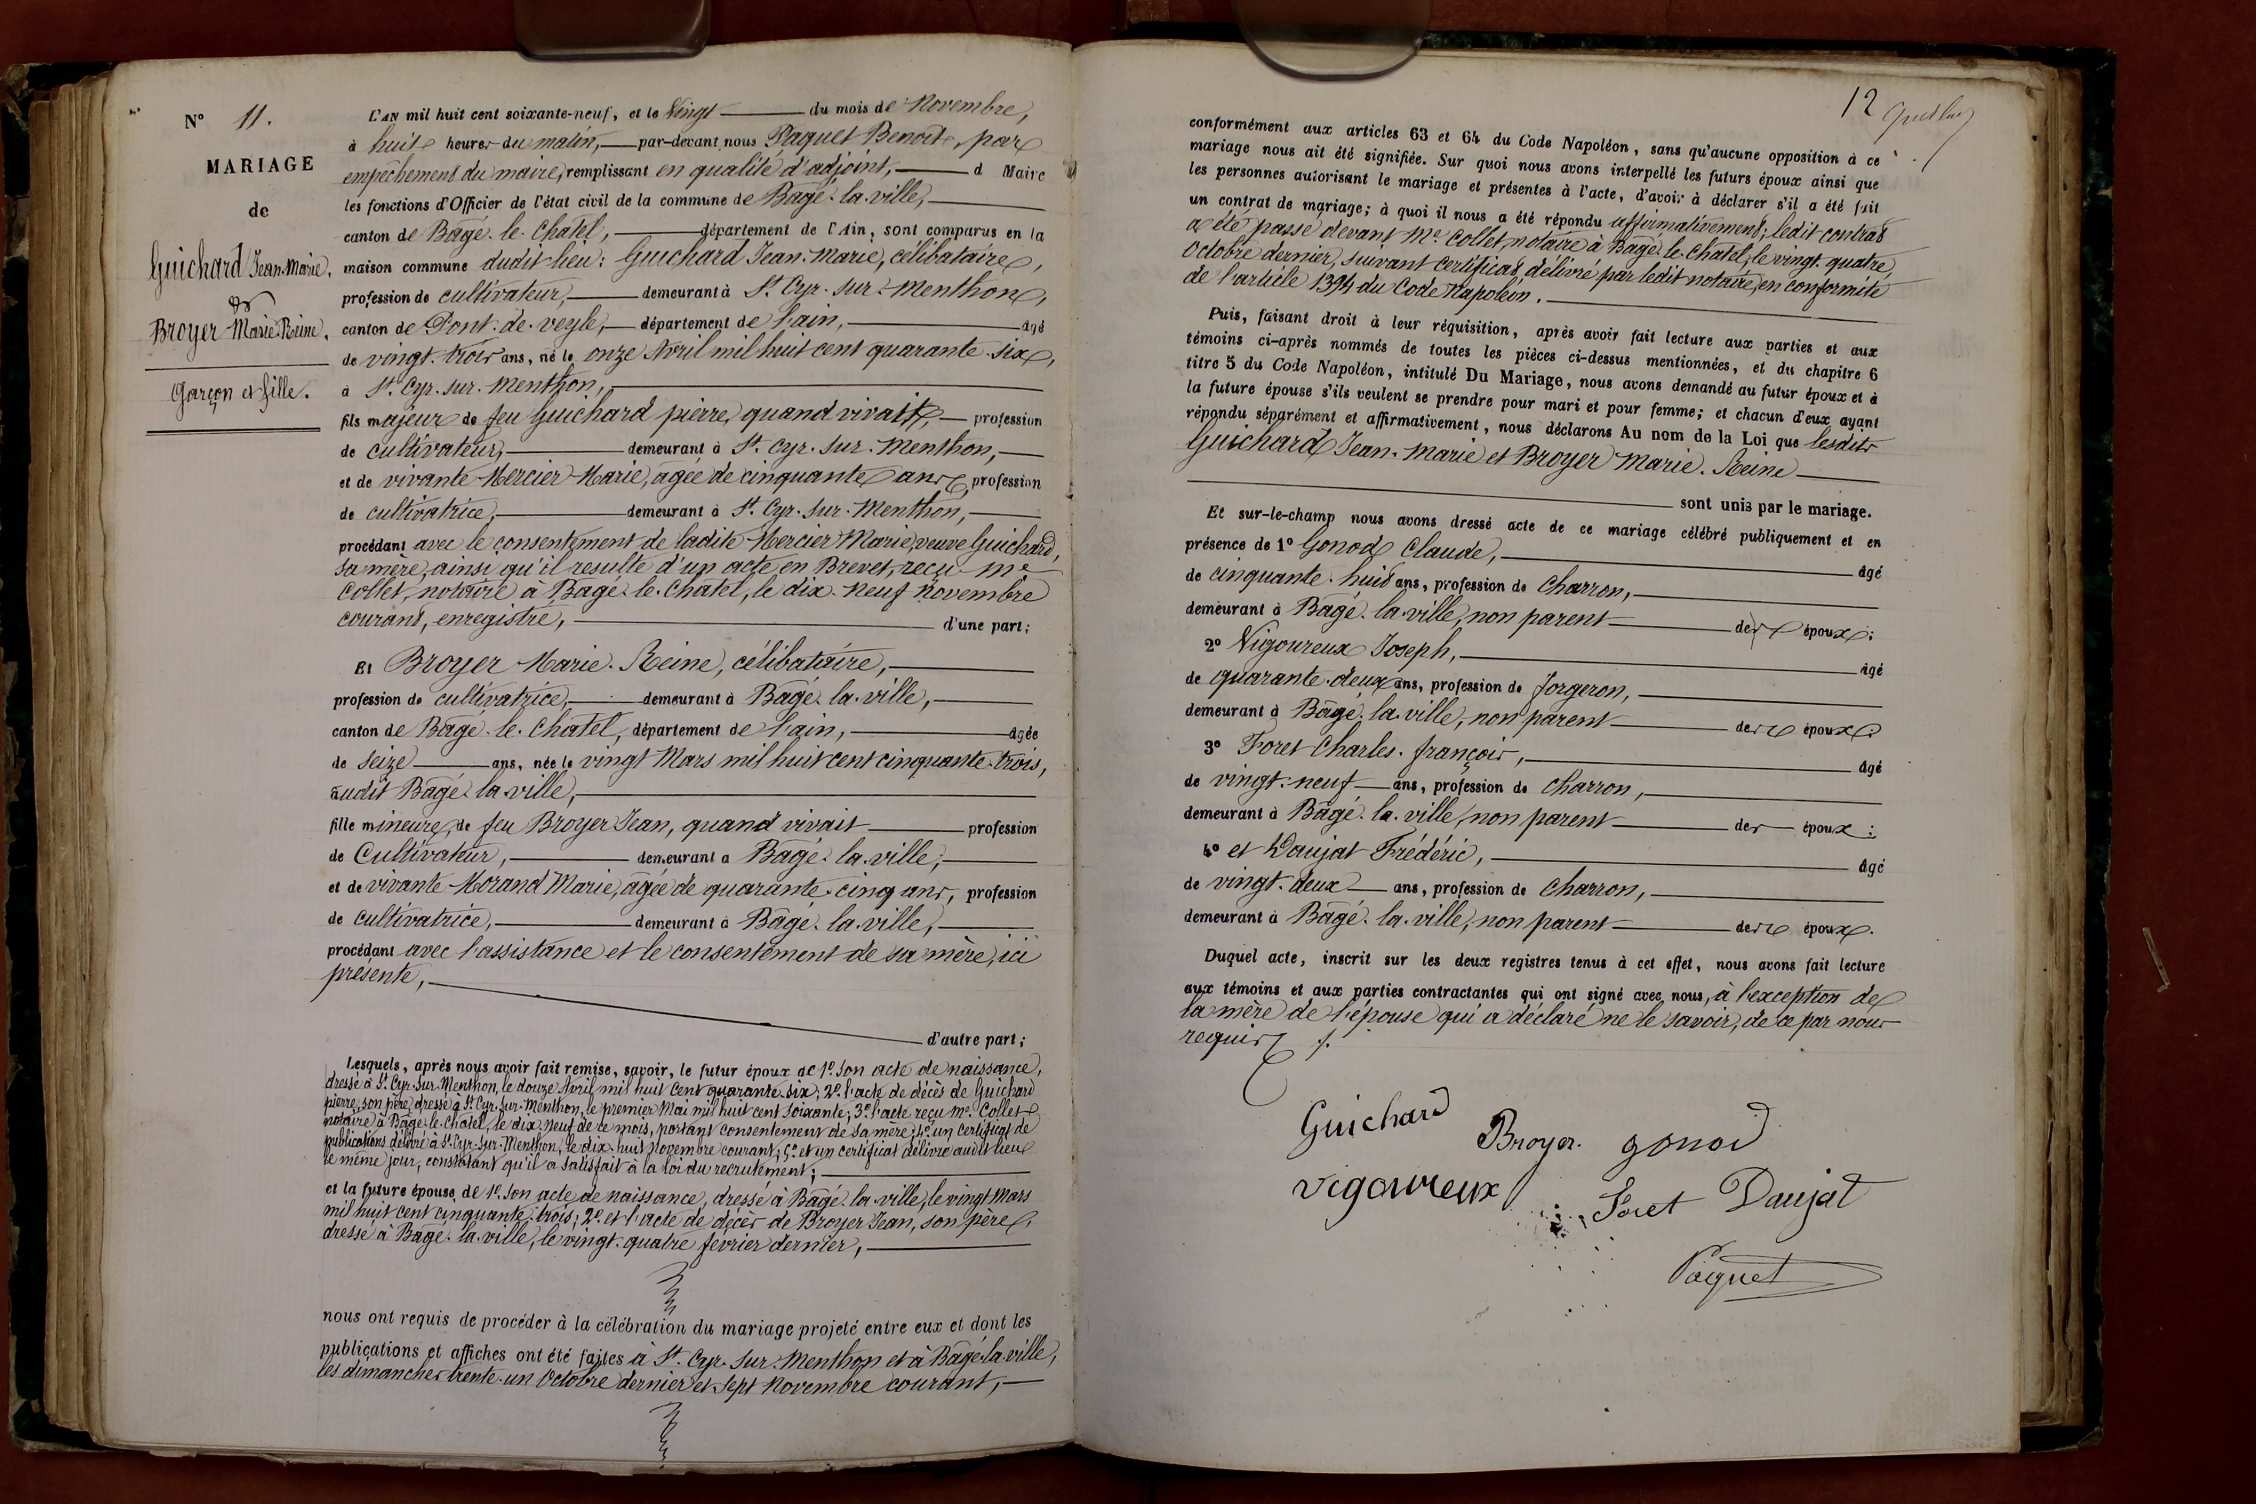 N° 11.
MARIAGE
de
Guichard Jean-Marie,
&
Broyer Marie-Reine.
Garçon et fille.
L'AN mil huit cent soixante-neuf, et le Vingt du mois de Novembre,
à huit heures du matin, par-devant nous Paquet Benoit, par
empêchement du maire, remplissant en qualité d'adjoint, d Maire
les fonctions d'Officier de l'état civil de la commune de Bâgé-la-ville,
canton de Bâgé-le-Chatel, département de l'Ain, sont comparus en la
maison commune dudit lieu: Guichard Jean-Marie, célibataire,
profession de cultivateur, demeurant à St Cyr-sur-Menthon,
canton de Pont-de-veyle, département de l'ain, âgé
de vingt-trois ans, né le onze Avril mil huit cent quarante-six,
à St Cyr-sur-Menthon,
fils majeur de feu Guichard pierre, quand vivait, profession
de cultivateur, demeurant à St Cyr-sur-Menthon,
et de vivante Mercier Marie, âgée de cinquante ans, profession
de cultivatrice, demeurant à St Cyr-sur-Menthon,
procédant avec le consentement de ladite Mercier Marie, veuve Guichard,
sa mère, ainsi qu'il resulte d'un acte en Brevet, reçu Me
Collet, notaire à Bâgé-le-Chatel, le dix-neuf novembre
courant, enregistré, d'une part;
Et Broyer Marie-Reine, célibataire,
profession de cultivatrice, demeurant à Bâgé-la-ville,
canton de Bâgé-le-Chatel, département de l'ain, âgée
de seize ans, née le vingt Mars mil huit cent cinquante-trois,
audit Bâgé-la-ville,
fille mineure, de feu Broyer Jean, quand vivait profession
de Cultivateur, demeurant à Bâgé-la-ville;
et de vivante Morand Marie, âgée de quarante-cinq ans, profession
de cultivatrice, demeurant à Bâgé-la-ville,
procédant avec l'assistance et le consentement de sa mère, ici
présente,
d'autre part;
Lesquels, après nous avoir fait remise, savoir, le futur époux de 1° Son acte de naissance,
dressé à St Cyr-sur-Menthon, le douze Avril mil huit cent quarante-six; 2° l'acte de décès de Guichard
pierre, son père, dressé à St Cyr-sur-Menthon, le premier Mai mil huit cent soixante; 3° l'acte reçu Me Collet
notaire à Bâgé-le-Chatel, le dix-neuf de ce mois, portant consentement de sa mère; 4° un certificat de
publications délivré à St Cyr-sur-Menthon, le dix-huit Novembre courant; 5° et un certificat délivré audit lieu
le même jour, constatant qu'il a satisfait à la loi du recrutement;
et la future épouse, de 1° Son acte de naissance, dressé à Bâgé-la-ville, le vingt Mars
mil huit cent cinquante-trois; 2° et l'acte de décès de Broyer Jean, son père,
dressé à Bâgé-la-ville, le vingt-quatre février dernier,
nous ont requis de procéder à la célébration du mariage projeté entre eux et dont les
publications et affiches ont été faites à St Cyr-sur-Menthon et à Bâgé-la-ville,
les dimanches trente-un Octobre dernier et sept Novembre courant,
12
conformément aux articles 63 et 64 du Code Napoléon, sans qu'aucune opposition à ce
mariage nous ait été signifiée. Sur quoi nous avons interpellé les futurs époux ainsi que
les personnes autorisant le mariage et présentes à l'acte, d'avoir à déclarer s'il a été fait
un contrat de mariage; à quoi il nous a été répondu affirmativement; ledit contrat
a été passé devant Me Collet, notaire à Bâgé-le-Chatel, le vingt-quatre
Octobre dernier, suivant certificat délivré par ledit notaire, en conformité
de l'article 1394 du Code Napoléon.
Puis, faisant droit à leur réquisition, après avoir fait lecture aux parties et aux
témoins ci-après nommés de toutes les pièces ci-dessus mentionnées, et du chapitre 6
titre 5 du Code Napoléon, intitulé Du Mariage, nous avons demandé au futur époux et à
la future épouse s'ils veulent se prendre pour mari et pour femme; et chacun d'eux ayant
répondu séparément et affirmativement, nous déclarons Au nom de la Loi que lesdits
Guichard Jean-Marie et Broyer Marie-Reine
sont unis par le mariage.
Et sur-le-champ nous avons dressé acte de ce mariage célébré publiquement et en
présence de 1° Gonod Claude, âgé
de cinquante-huit ans, profession de Charron,
demeurant à Bâgé-la-ville, non parent des époux;
2° Vigoureux Joseph, âgé
de quarante-deux ans, profession de forgeron,
demeurant à Bâgé-la-ville, non parent des époux;
3° Foret Charles-françois, âgé
de vingt-neuf ans, profession de Charron,
demeurant à Bâgé-la-ville, non parent des époux;
4° et Daujat Frédéric, âgé
de vingt-deux ans, profession de Charron,
demeurant à Bâgé-la-ville, non parent des époux.
Duquel acte, inscrit sur les deux registres tenus à cet effet, nous avons fait lecture
aux témoins et aux parties contractantes qui ont signé avec nous, à l'exception de
la mère de l'épouse qui a déclaré ne le savoir, de ce par nous
requis ./.
Guichard
Broyer. gonod
vigoureux
Foret Daujat
Paquet